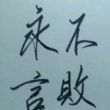 永不
言敗